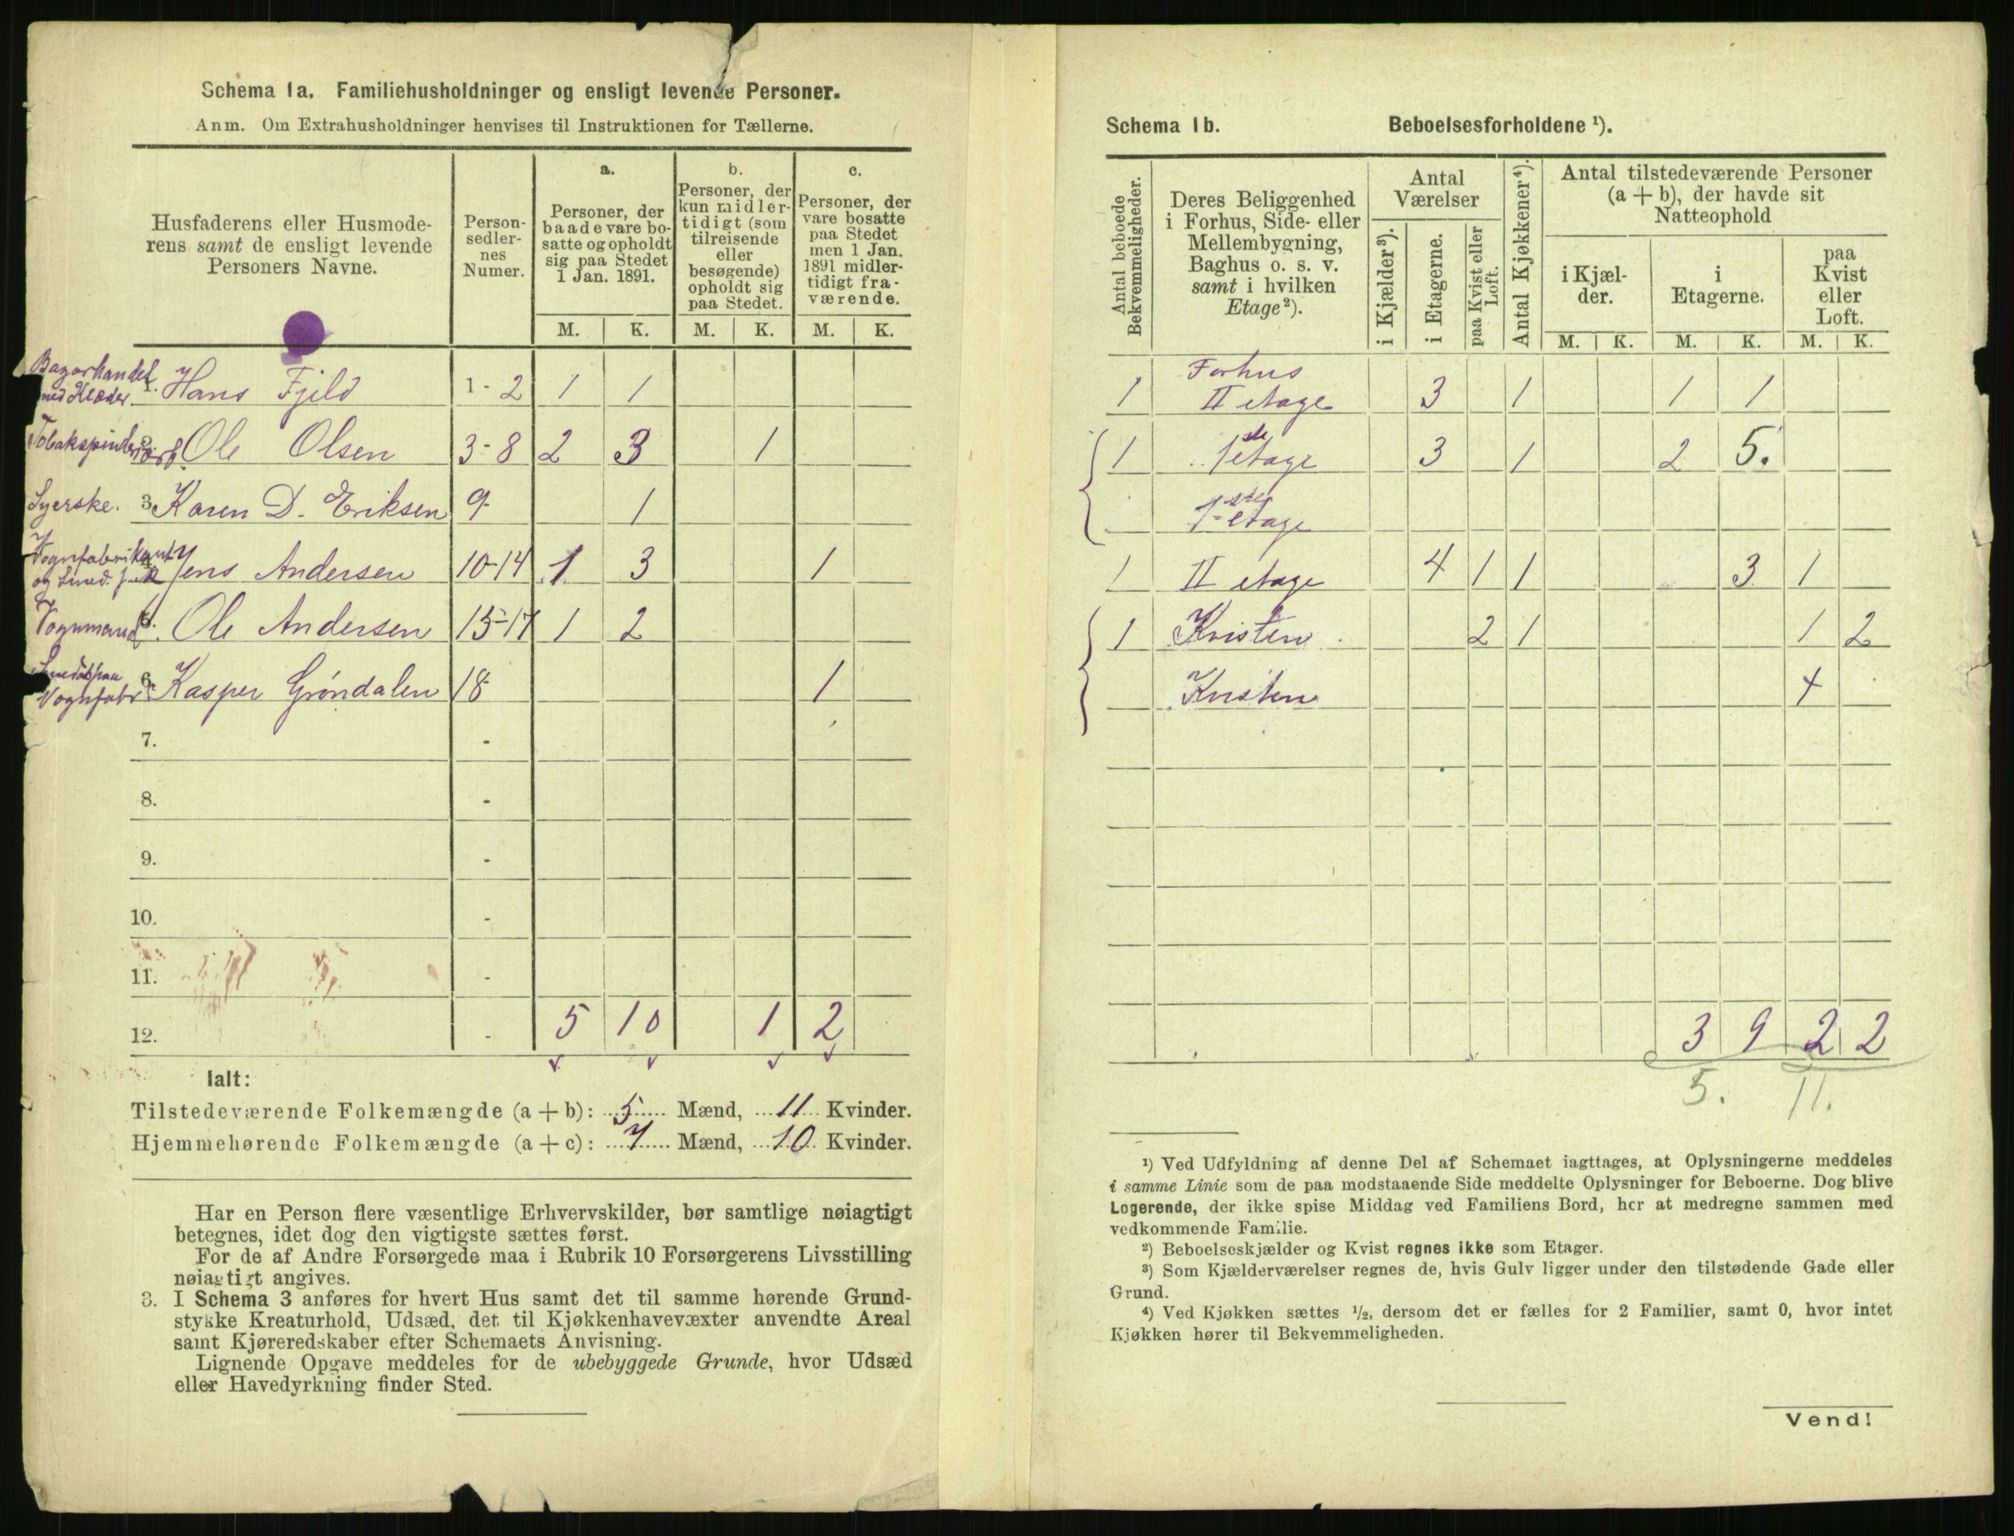 Schema 1a. Familiehusholdninger og ensligt levende Personer.
Anm. Om Extrahusholdninger henvises til Instruktionen for Tællerne.
Husfaderens eller Husmode-
rens samt de ensligt levende
Personers Navne.
Person-
sedler-
nes
Numer.
a.
Personer, der
baade vare bo-
satte og opholdt
sig paa Stedet
1 Jan. 1891.
b.
Personer, der
kun midler-
tidigt (som
tilreisende
eller
besøgende)
opholdt sig
paa Stedet.
c.
Personer, der
vare bosatte
paa Stedet
men 1 Jan.
1891 midler-
tidigt fra-
værende.
M. K. M. K. M. K.
Bazarhandel
med Klæder 1. Hans Fjeld 1-2 1 1
Tobakspinder 2. Ole Olsen 3-8 2 3 1
Syerske. 3. Karen D. Eriksen 9- 1
Vognfabrikant
og Smed. Jens Andersen 10-14 1 3 1
Vognmand 5. Ole Andersen 15-17 1 2
paa
Vognfabr. 6. Kasper Grøndalen 18- 1
7. -
8. -
9. -
10. -
11. -
12. - 5 10 1 2
Ialt:
Tilstedeværende Folkemængde (a + b): 5 Mænd, 11 Kvinder.
Hjemmehørende Folkemængde (a + c): 7 Mænd, 10 Kvinder.
Har en Person flere væsentlige Erhvervskilder, bør samtlige nøiagtigt
betegnes, idet dog den vigtigste sættes først.
For de af Andre Forsørgede maa i Rubrik 10 Forsørgerens Livsstilling
nøiagtigt angives.
3. I Schema 3 anføres for hvert Hus samt det til samme hørende Grund-
stykke Kreaturhold, Udsæd, det til Kjøkkenhavevæxter anvendte Areal
samt Kjøreredskaber efter Schemaets Anvisning.
Lignende Opgave meddeles for de ubebyggede Grunde, hvor Udsæd
eller Havedyrkning finder Sted.
Schema 1b. Beboelsesforholdene ¹).
Antal beboede
Bekvemmeligheder.
Deres Beliggenhed
i Forhus, Side- eller
Mellembygning,
Baghus o. s. v.
samt i hvilken
Etage²).
Antal
Værelser
i Kjælder³).
i Etagerne.
paa Kvist eller
Loft.
Antal Kjøkkener⁴).
Antal tilstedeværende Personer
(a + b), der havde sit
Natteophold
i Kjæl-
der.
i
Etagerne.
paa
Kvist
eller
Loft.
M. K. M. K. M. K.
Forhus
1 II etage 3 1 1 1
1 1ste etage 3 1 2 5.
1ste etage
1 II etage 4 1 1 3 1
1 Kvisten 2 1 1 2
Kvisten +
3 9 2 2
5. 11.
¹) Ved Udfyldning af denne Del af Schemaet iagttages, at Oplysningerne meddeles
i samme Linie som de paa modstaaende Side meddelte Oplysninger for Beboerne. Dog blive
Logerende, der ikke spise Middag ved Familiens Bord, her at medregne sammen med
vedkommende Familie.
²) Beboelseskjælder og Kvist regnes ikke som Etager.
³) Som Kjælderværelser regnes de, hvis Gulv ligger under den tilstødende Gade eller
Grund.
⁴) Ved Kjøkken sættes ½, dersom det er fælles for 2 Familier, samt 0, hvor intet
Kjøkken hører til Bekvemmeligheden.
Vend!